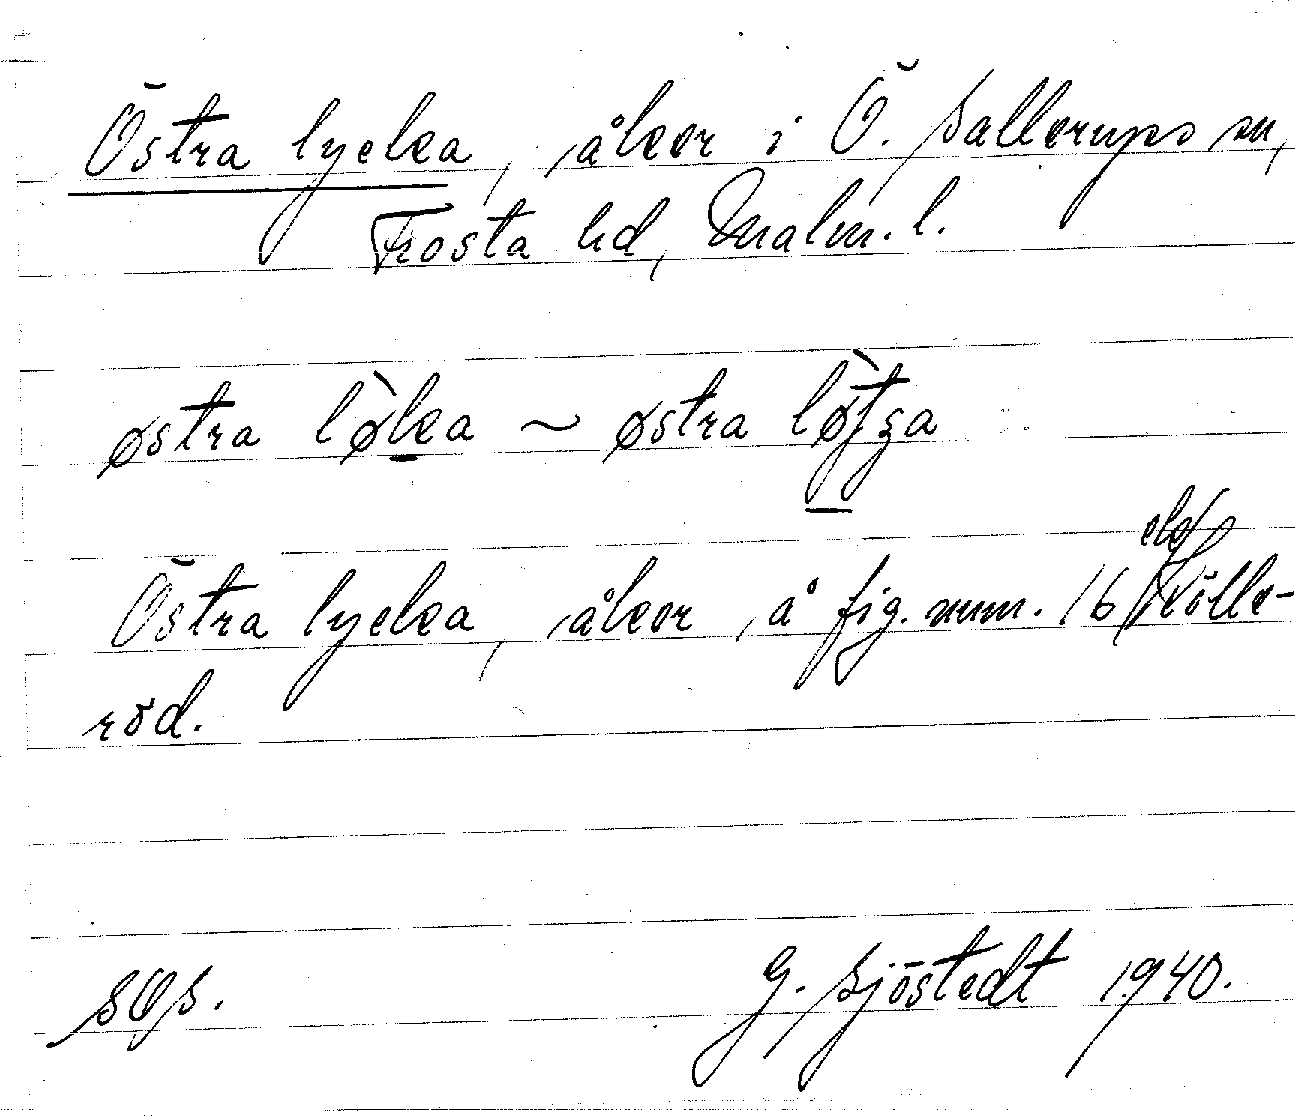 Östra lycka, åker i Ö. Sallerups sn,
Frosta hd, Malm. l.
østra lø̀ka ~ østra lø̀tʒa
Östra lycka, åker, å fig. num. 16
röd.
SOS.
G. Sjöstedt 1940.